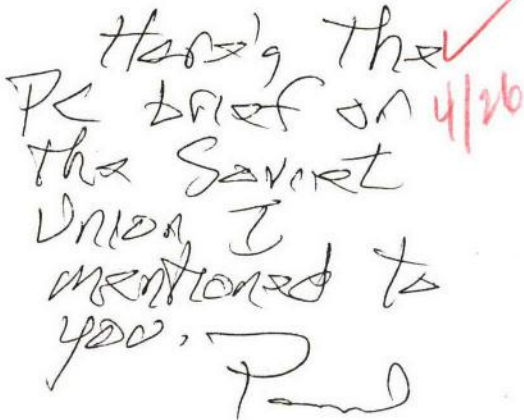 Here's the
PC brief on 4/26
the Soviet
Union I
mentioned to
you.
Paul